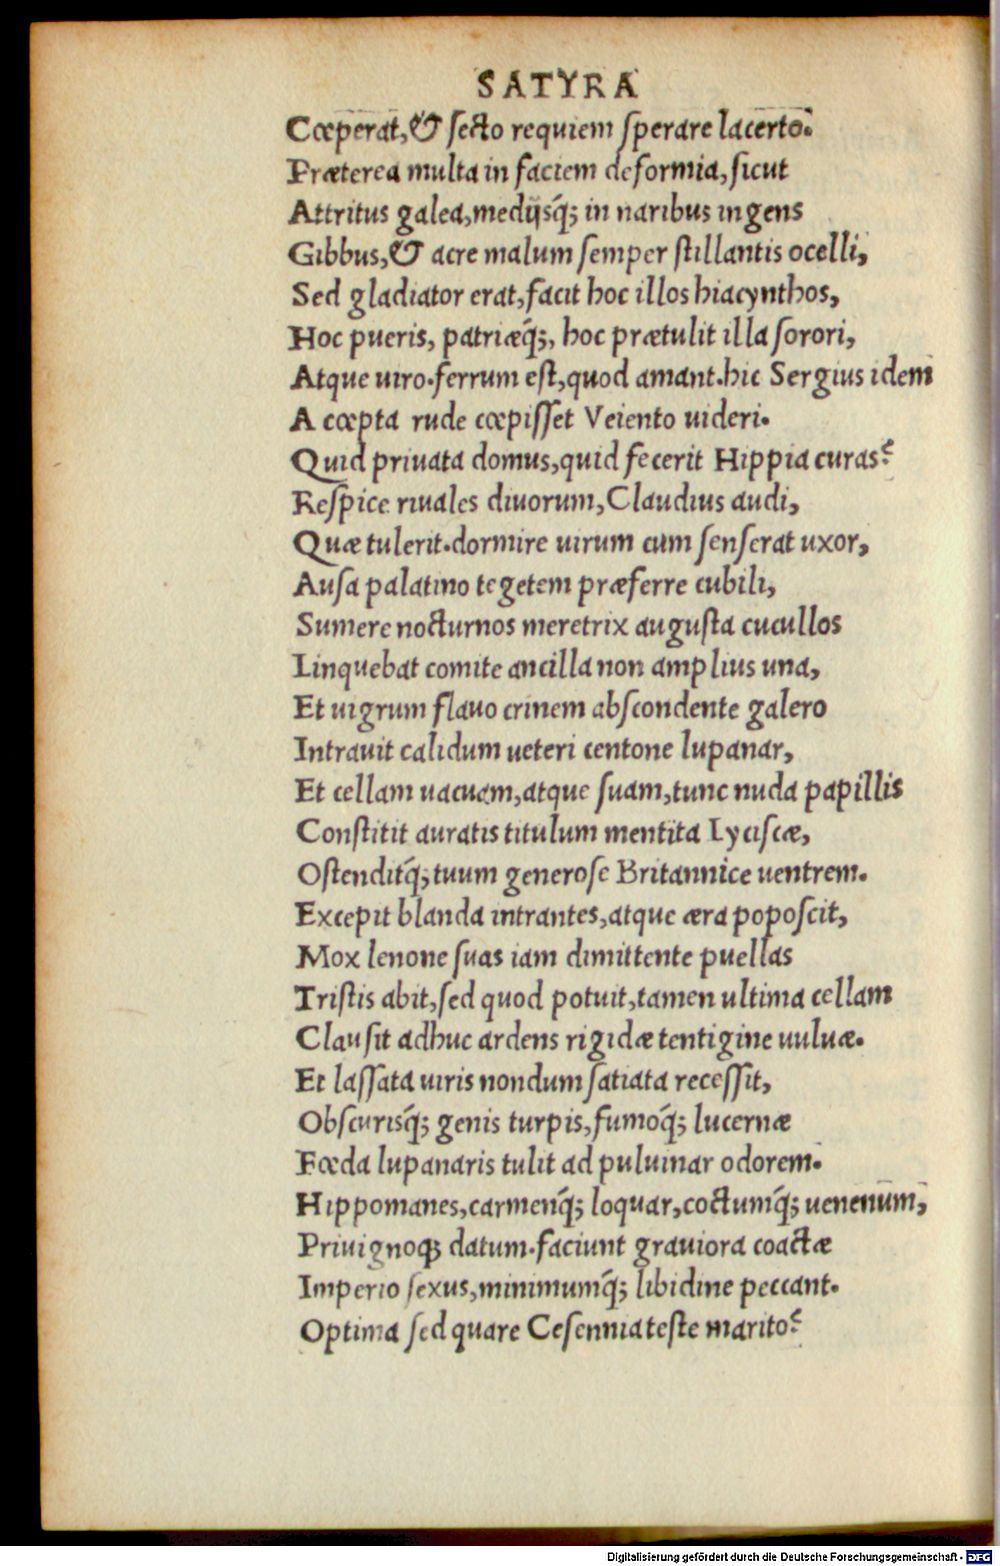 SATYRA
Cœperat, & secto requiem sperare lacerto.
Præterea multa in faciem deformia, sicut
Attritus galea, medijsq́; in naribus ingens
Gibbus, & acre malum semper stillantis ocelli,
Sed gladiator erat, facit hoc illos hiacynthos,
Hoc pueris, patriæq́;, hoc prætulit illa sorori,
Atque uiro. ferrum est, quod amant. hic Sergius idem
A cœpta rude cœpisset Veiento uideri.
Quid priuata domus, quid fecerit Hippia curas?
Respice riuales diuorum, Claudius audi,
Quæ tulerit. dormire uirum cum senserat uxor,
Ausa palatino tegetem præferre cubili,
Sumere nocturnos meretrix augusta cucullos
Linquebat comite ancilla non amplius una,
Et uigrum flauo crinem abscondente galero
Intrauit calidum ueteri centone lupanar,
Et cellam uacuam, atque suam, tunc nuda papillis
Constitit auratis titulum mentita Lyciscæ,
Ostenditq́; tuum generose Britannice uentrem.
Excepit blanda intrantes, atque æra poposcit,
Mox lenone suas iam dimittente puellas
Tristis abit, sed quod potuit, tamen ultima cellam
Clausit adhuc ardens rigidæ tentigine uuluæ.
Et lassata uiris nondum satiata recessit,
Obscurisq́; genis turpis, fumoq́; lucernæ
Fœda lupanaris tulit ad puluinar odorem.
Hippomanes, carmenq́; loquar, coctumq́; uenenum,
Priuignoq; datum. faciunt grauiora coactæ
Imperio sexus, minimumq́; libidine peccant.
Optima sed quare Cesennia teste marito?
Digitalisierung gefördert durch die Deutsche Forschungsgemeinschaft - DFG